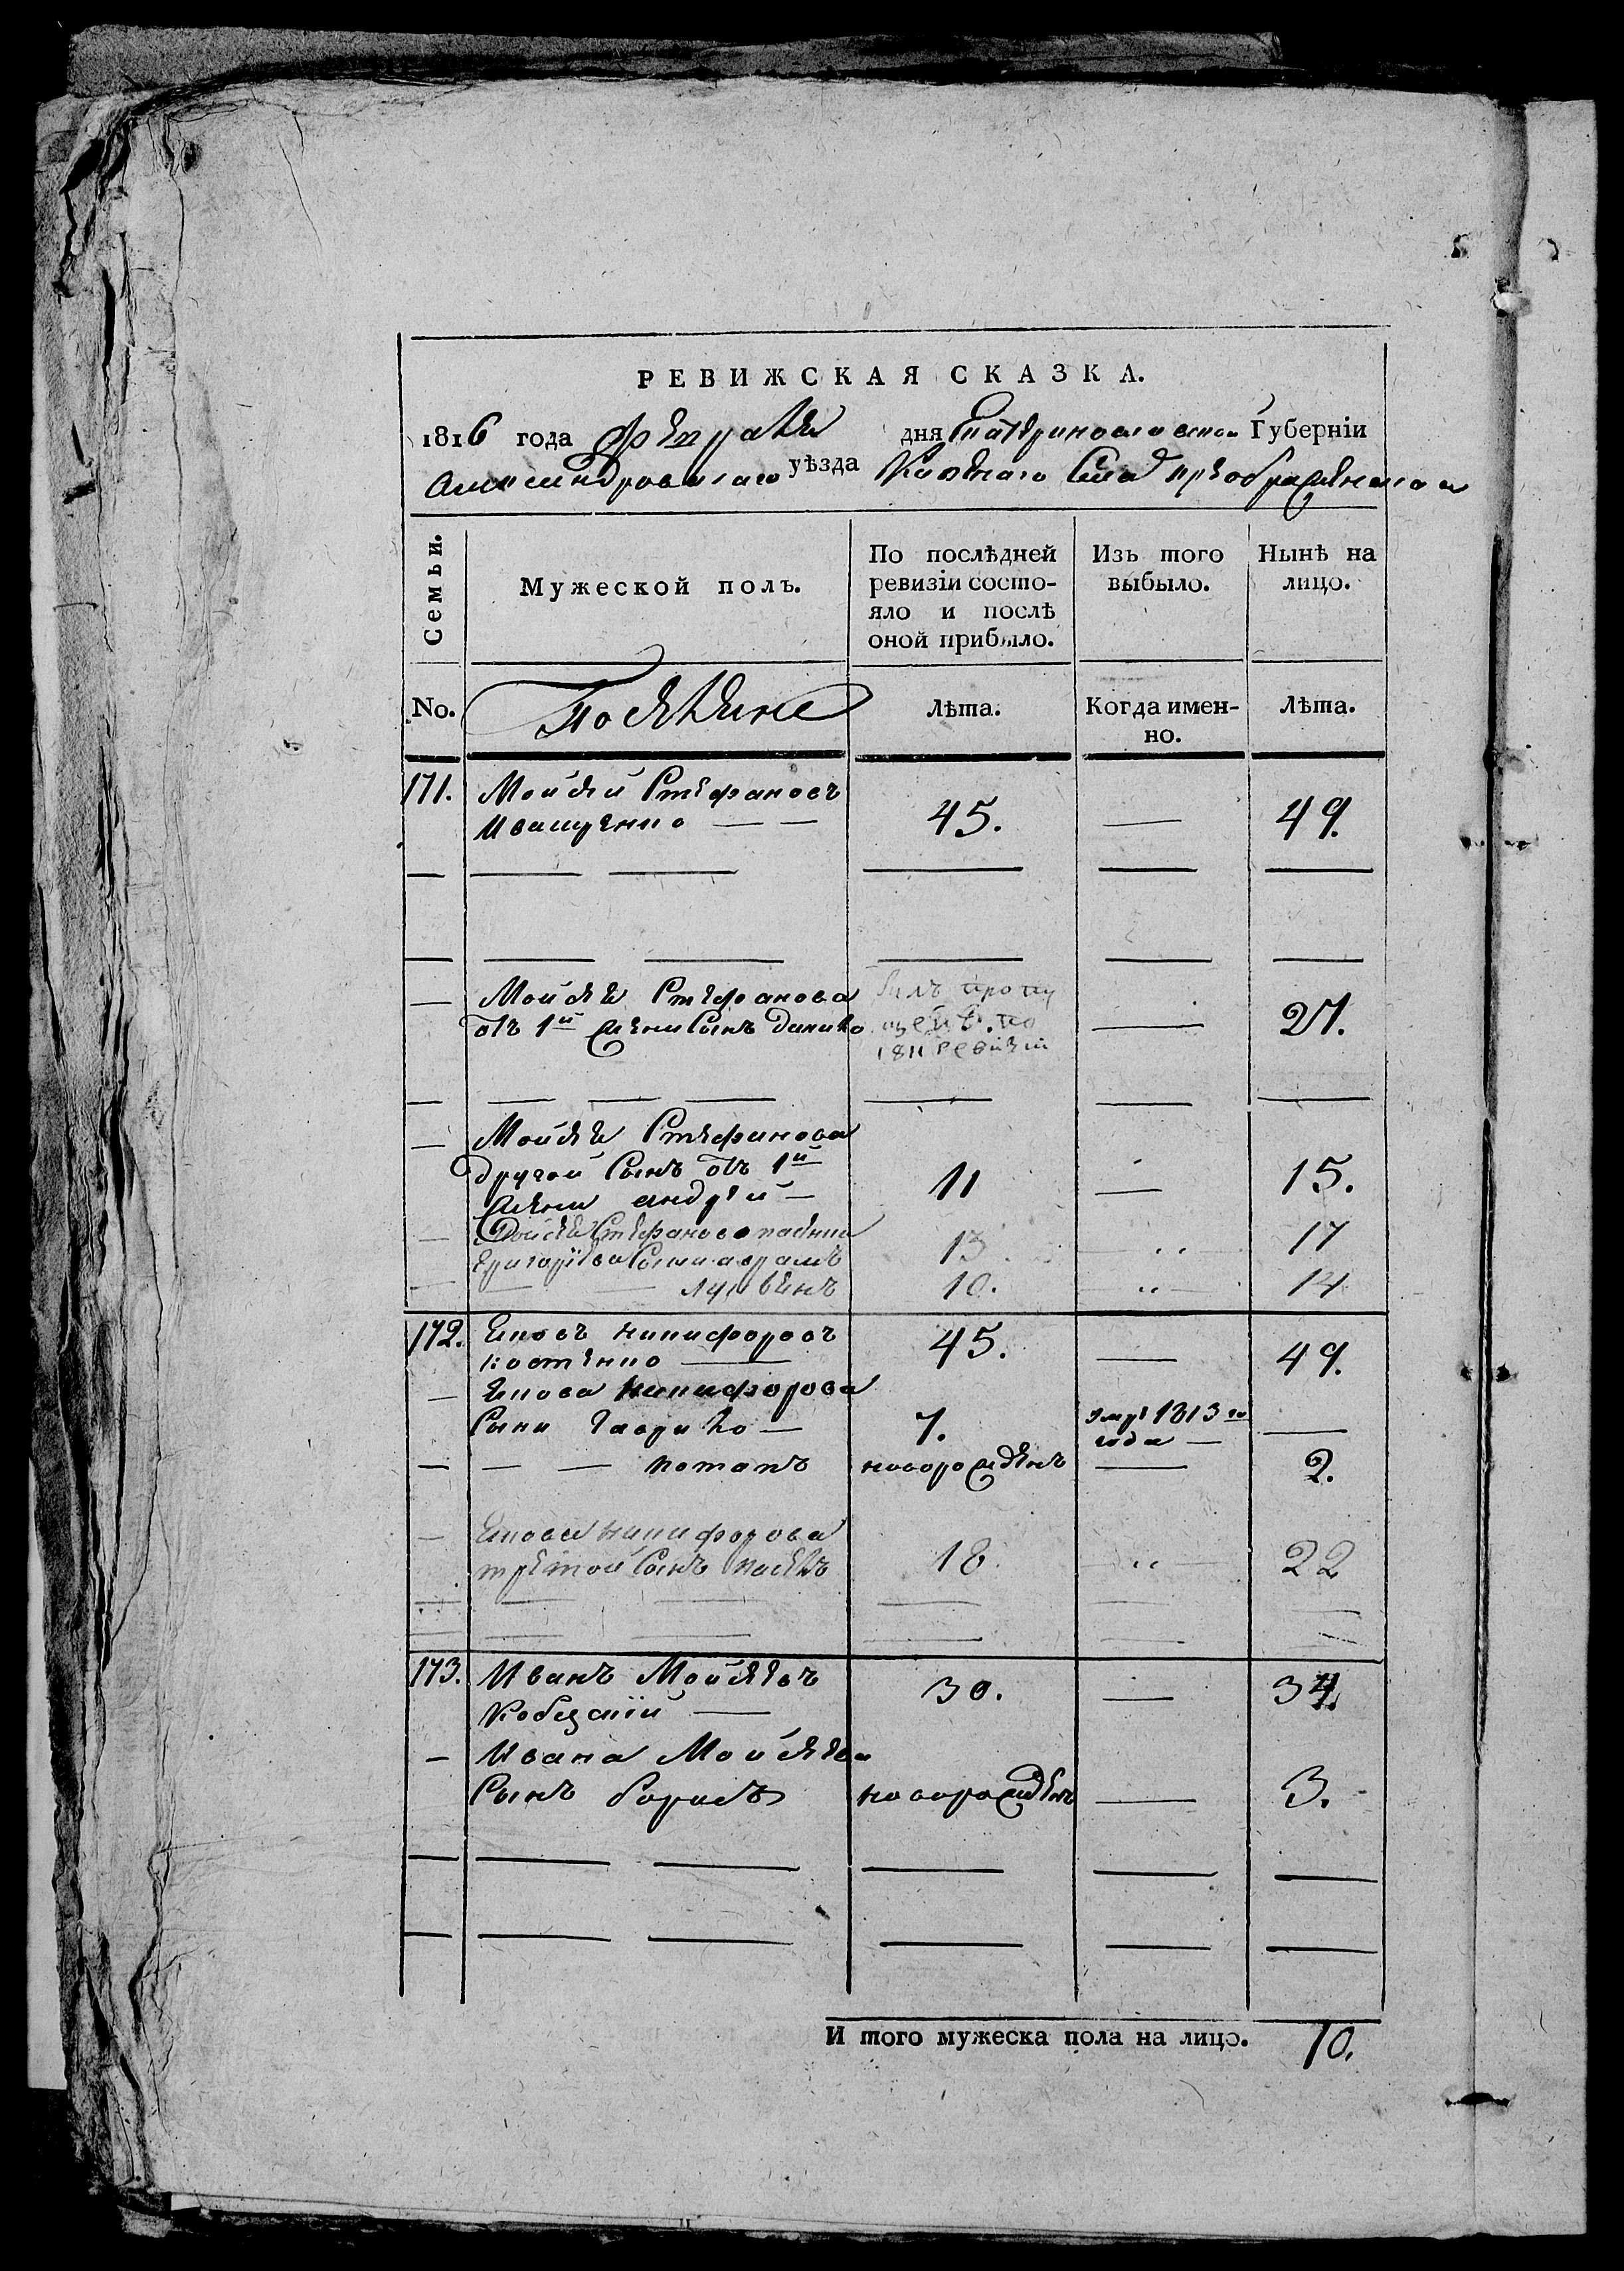 РЕВИЖСКАЯ СКАЗКА.
1816 года февраля дня Екатеринославской Губерніи
Александровскаго уѣзда Казѣннаго Села преображенского
Семьи. Мужеской полъ. По послѣдней ревизіи состо- яло и послѣ оной прибыло. Изъ того выбыло. Нынѣ на лицо.
No. Поселяне Лѣта. Когда имен- но. Лѣта.
171. Мойсей Стефановъ
Иващенко — — 45. — 49.
— Мойсея Стефанова былъ пропу
отъ 1й жени Сынъ Данило щенъ. по — 27.
1811 ревизіи
— Мойсея Стефанова
другой Сынъ отъ 1й 11 — 15.
жени андрей —
— Мойсея Стефанова пасынки
Григорїева Сыни аврамъ 13 „ 17
— — — лукіянъ 10. „ 14
172. Яковъ никифоровъ 45. — 49.
костенко —
— Якова никифорова
Сыни Гаврило — 7. умре 1813го года — —
— — — потапъ новорожденъ — 2.
— Якова никифорова
третой Сынъ павелъ 18 „ 22
173. Иванъ Мойсеевъ 30. — 34.
Кобецкїй —
— Ивана Мойсеева
Сынъ борисъ новорожденъ — 3.
И того мужеска пола на лицо. 10.